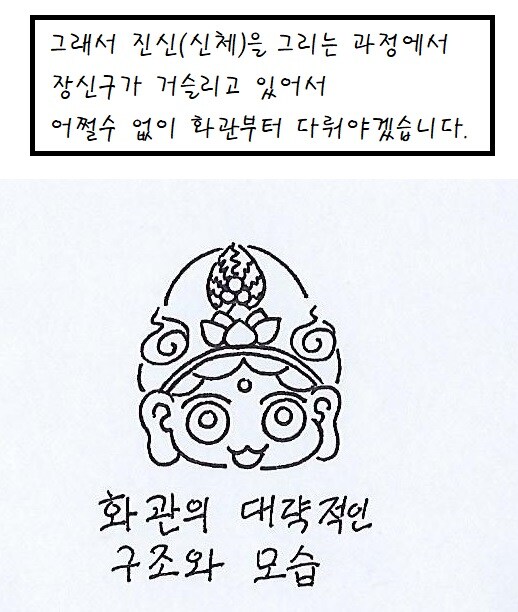 그래서 진신(신체)을 그리는 과정에서
장신구가 거슬리고 있어서
어쩔수 없이 화관부터 다뤄야겠습니다.
화관의 대략적인
구조와 모습